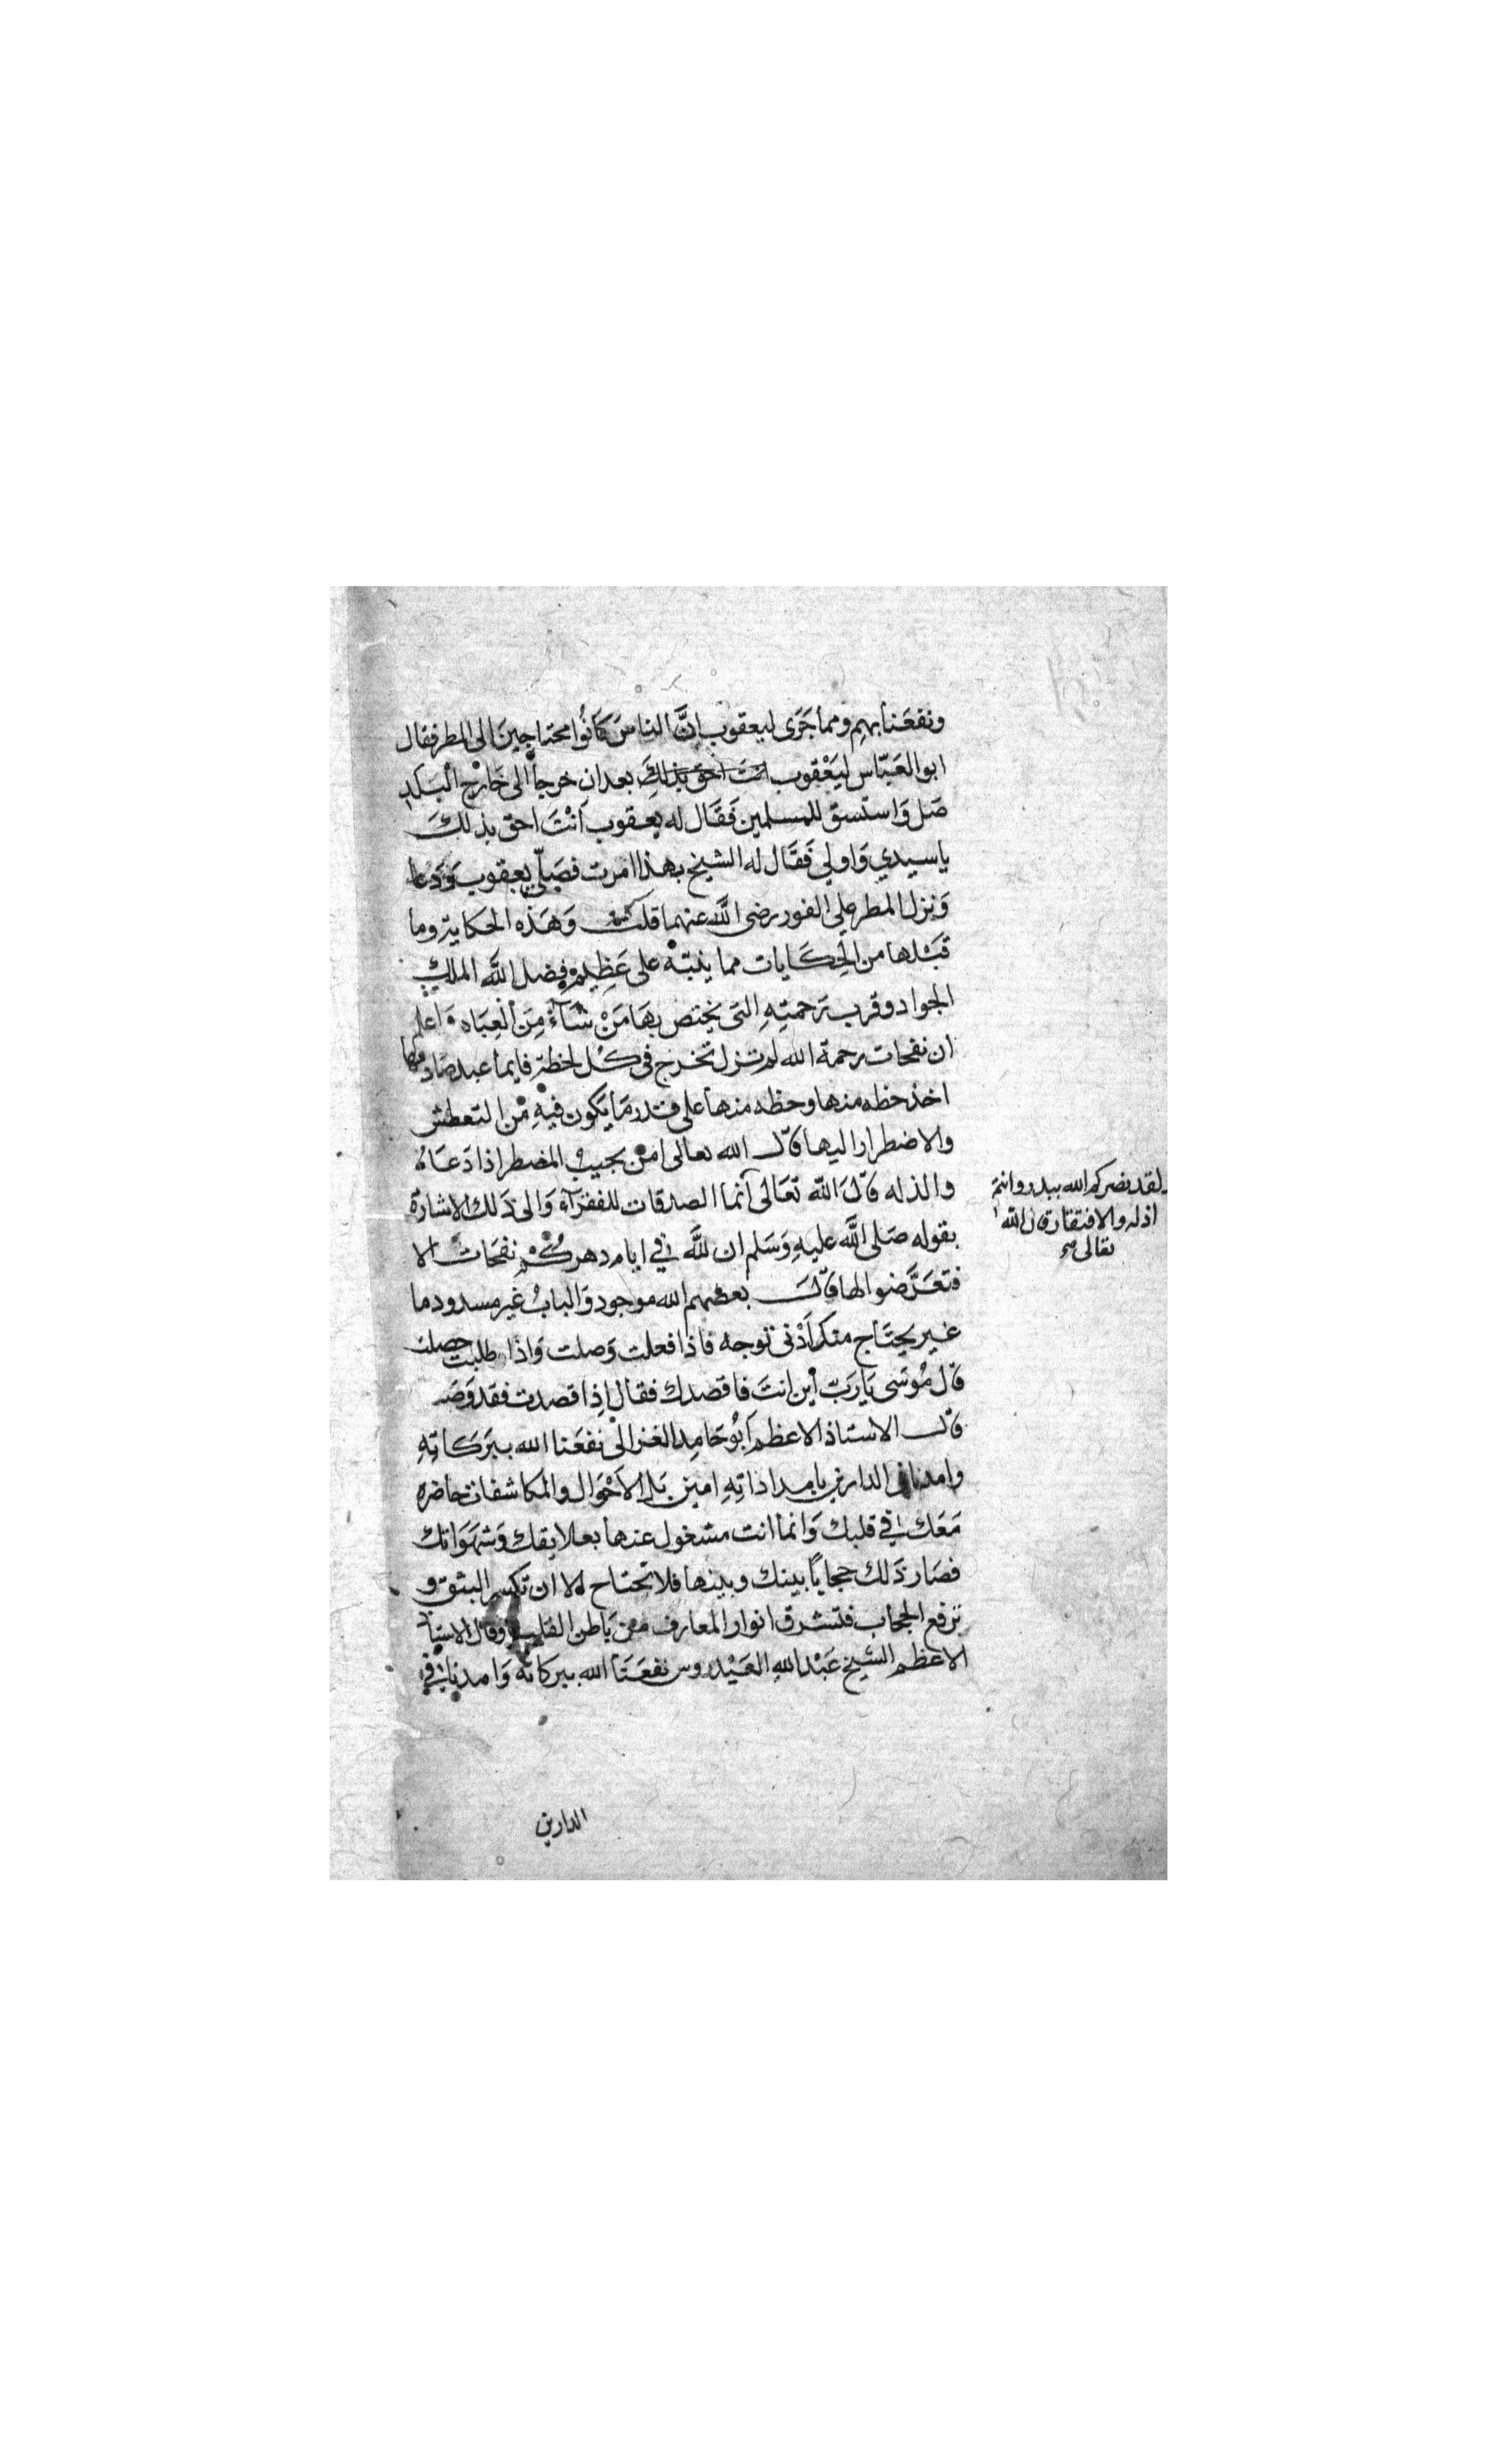 ونفعَنا بهم ومما جَرَى ليعقوب انَّ الناسَ كَانُوا محتاجينَ الى المطر فقال
ابو العَبّاس ليَعْقوب انتَ احَق بذلِكَ بعد ان خرجا الى خَارْج الْبَلَدِ
صَل وَاستسق للمسلمين فَقَال له يعقوب أنْتَ احق بذلكَ
يا سيدي وَاولي فَقَال له الشيخ بهذا امرت فصَلّي يعقوب وَدَعا
وَنزل المطر علي الفور رضى اللَّه عنهما قلت وَهَذه الحكاية وما
قبَْلها من الحِكَايات مما ينبّه على عَظِيم فضل اللَّه الملكِ
الجواد وقرب رَحمتِهِ التى يختص بهَا مَنْ شَآءَ مِنَ الْعِبَاد وَاعلم
ان نفحات رحمة الله لم تزل تخرج فى كُل لحظة فايما عبد صَادفها
اخذ حظه منها وحظه منها على قدر مَا يَكون فيْهِ مْن التعطش
والاضطرار اليها قاَل الله تعالى امن يجيبُ المضطر اذا دَعَاهُ
والذله قاَل اللّه تعَالى أنما الصدقات للفقرَآء وَالى ذَلك الاشارة
بقوله صَلى اللَّه عليهِ وَسَلم ان للَّه في ايام دهركُمْ نفحَات الا
فتعَرَّضنوا لها قاَل بعضهم الله موجود وَالبابُ غير مسدود ما
غير يحتَاج منك أَدْنى توجه فاذا فعلت وَصلت وَاذا طلبت حصلت
قاَل مُوسَى يَا رَبّ أين انتَ فاقصدك فقال إِذا قصدت فقد وَصَـ
قاَل الاستاذ الاعظم أبُو حَامِد الغزالى نفعَنا الله ببَرَكَاتِهِ
وامدنا فى الدارين بامداداتِهِ امين بَل الاَحْوَال والمكاشفات حاضره
مَعَك في قلبك وَانما انت مشغول عنها بعلايقك وَشهَوَاتك
فصَار ذَلك حجابًا بينك وبينها فلا تحتاح الا ان تكسر الشوق و
ترفع الحجاب فتشرق انوار المعارف من بَاطن القلب وقال الاستا
الاعظم الشيخ عَبْد اللهِ العَيْدروس نفعَنَا الله ببركاته وَامدنا في
الدارين
ولقد نصركم الله ببدر وانتم
اذله والافتقار قال اللّه
تعالى صح